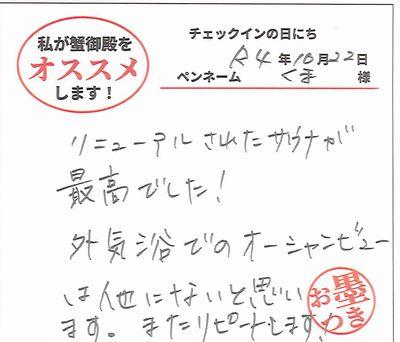 私が蟹御殿を
オススメ
します！
チェックインの日にち
R4年10月22日
ペンネーム くま 様
リニューアルされたサウナが
最高でした！
外気浴でのオーシャンビュー
は他にないと思い
ます。またリピートします！
お墨つき